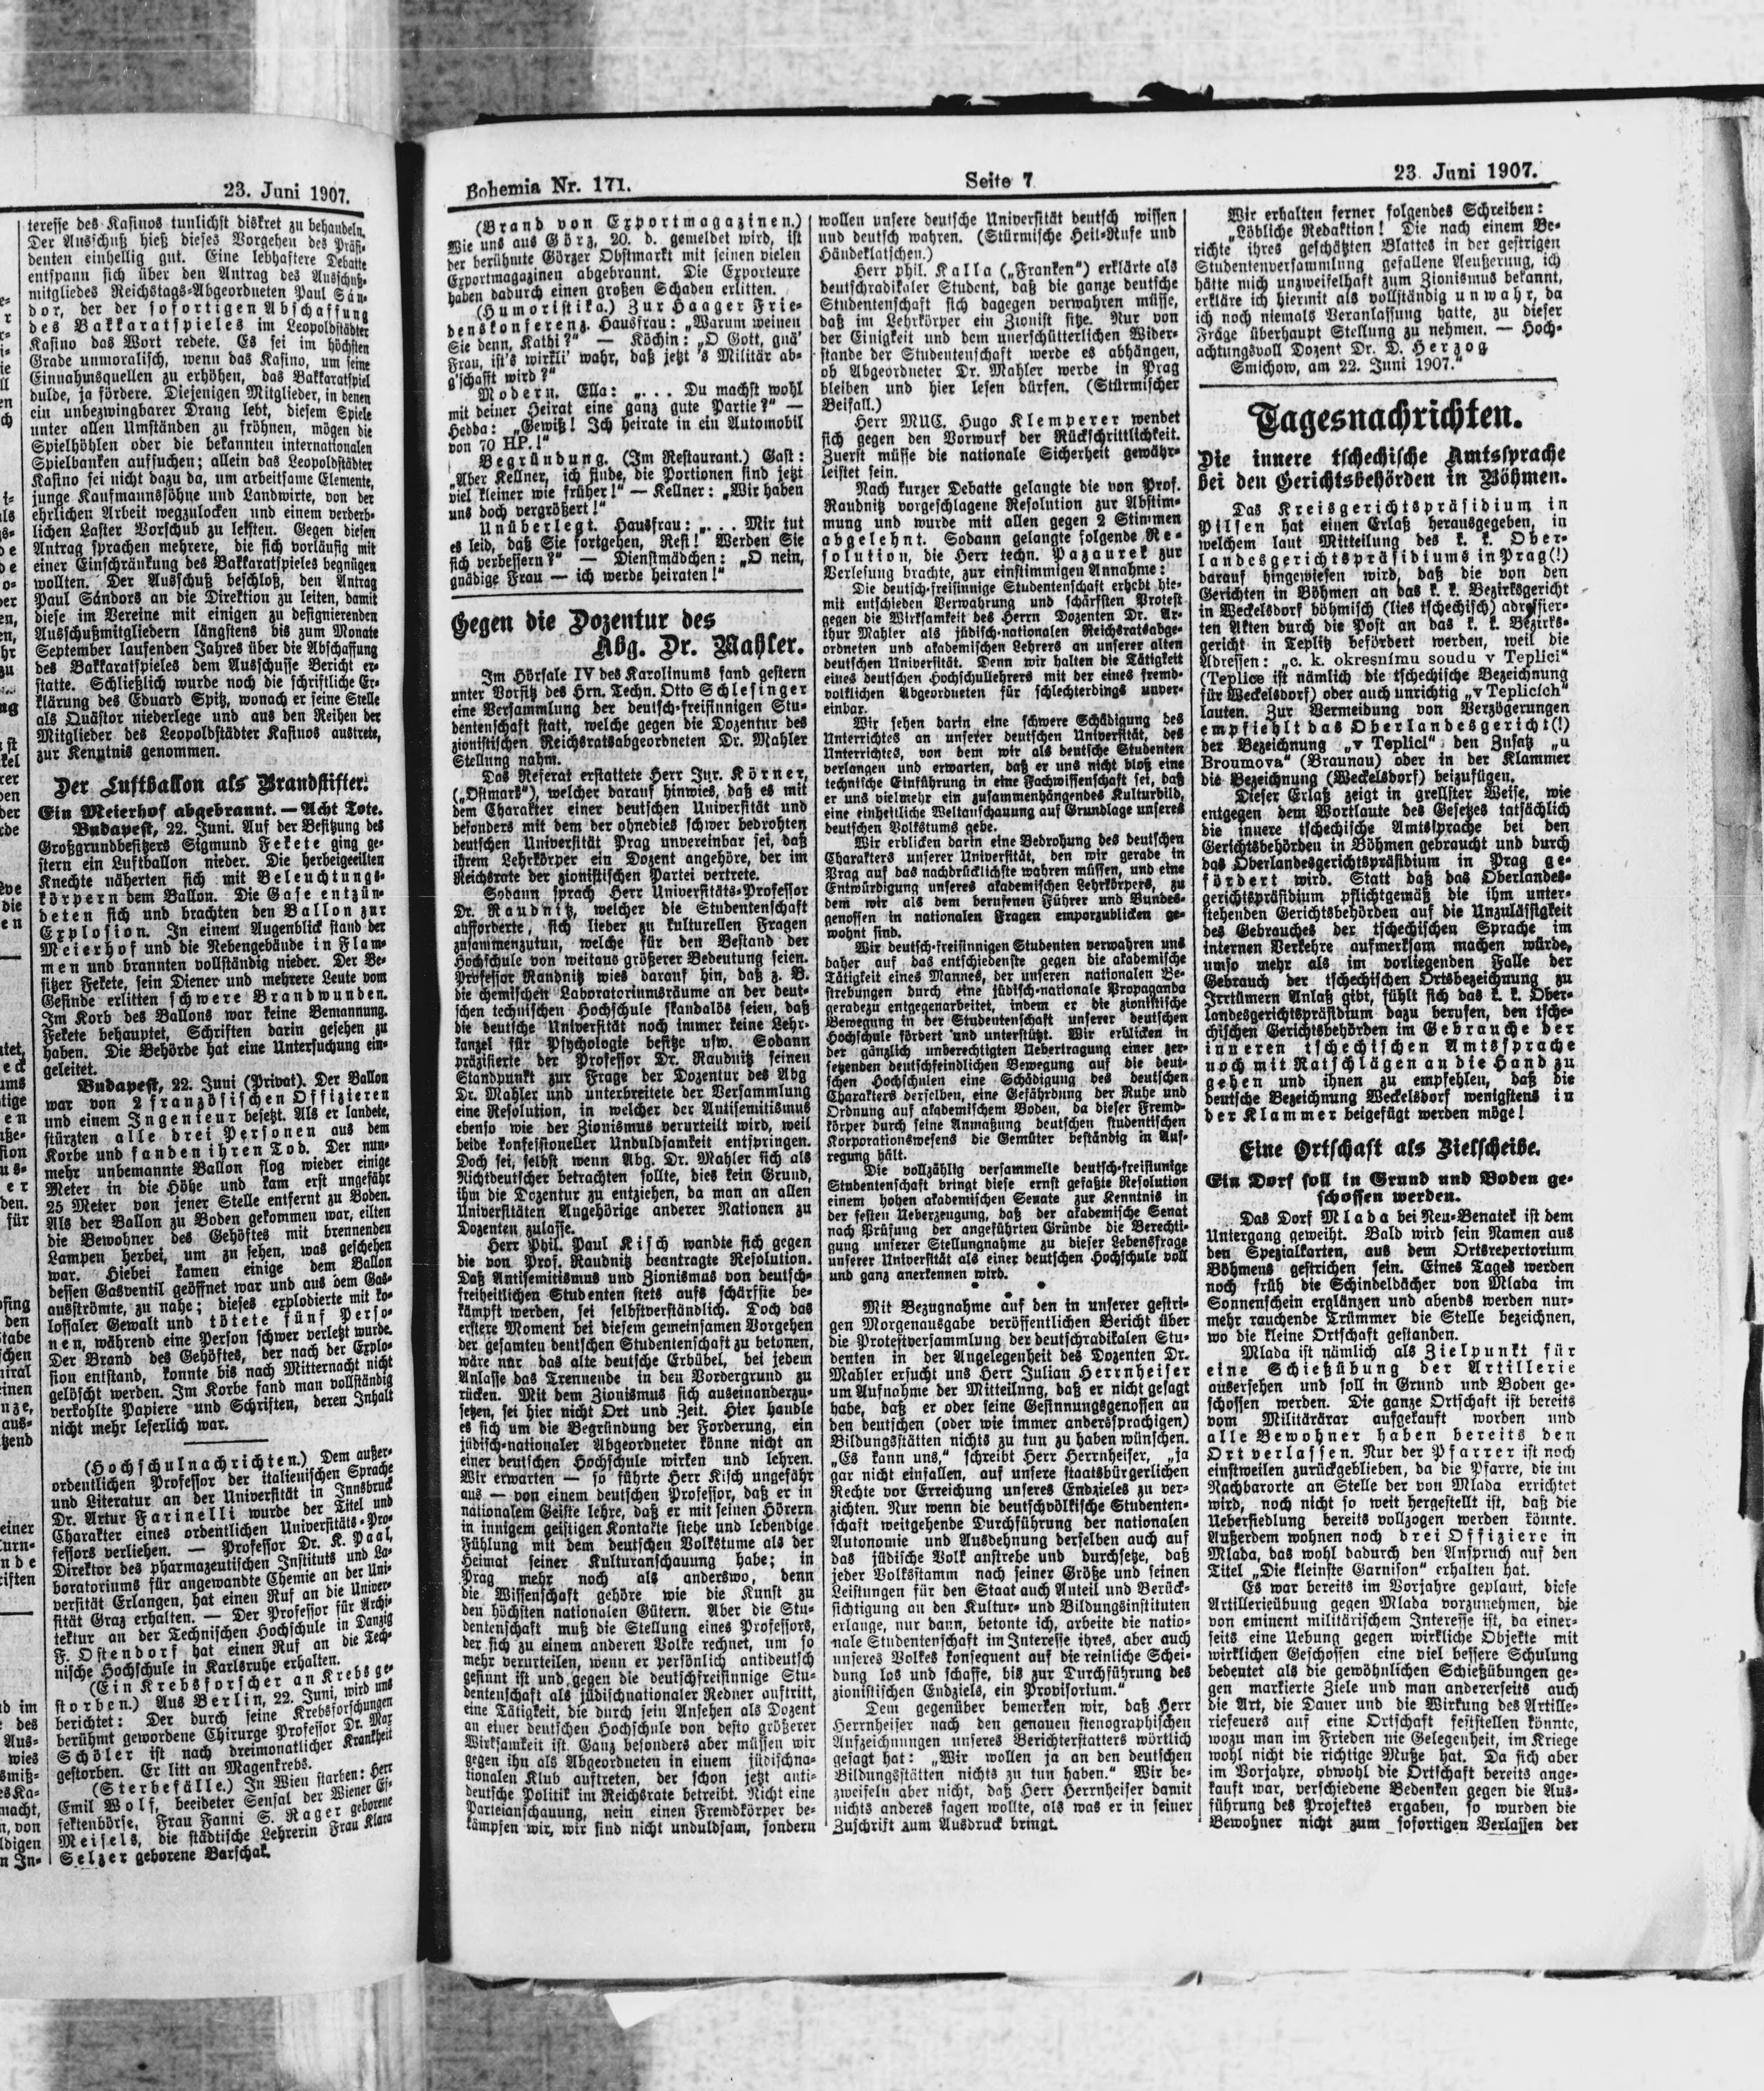 23. Juni 1907.
teresse des Kasinos tunlichst diskret zu behandeln.
Der Ausschuß hieß dieses Vorgehen des Präsi-
denten einhellig gut. Eine lebhaftere Debatte
entspann sich über den Antrag des Ausschuß-
mitgliedes Reichstags-Abgeordneten Paul Sán-
dor, der der sofortigen Abschaffung
des Bakkaratspieles im Leopoldstädter
Kasino das Wort redete. Es sei im höchsten
Grade unmoralisch, wenn das Kasino, um seine
Einnahmsquellen zu erhöhen, das Bakkaratspiel
dulde, ja fördere. Diejenigen Mitglieder, in denen
ein unbezwingbarer Drang lebt, diesem Spiele
unter allen Umständen zu fröhnen, mögen die
Spielhöhlen oder die bekannten internationalen
Spielbanken aufsuchen; allein das Leopoldstädter
Kasino sei nicht dazu da, um arbeitsame Elemente,
junge Kaufmannssöhne und Landwirte, von der
ehrlichen Arbeit wegzulocken und einem verderb-
lichen Laster Vorschub zu leisten. Gegen diesen
Antrag sprachen mehrere, die sich vorläufig mit
einer Einschränkung des Bakkaratspieles begnügen
wollten. Der Ausschuß beschloß, den Antrag
Paul Sándors an die Direktion zu leiten, damit
diese im Vereine mit einigen zu designierenden
Ausschußmitgliedern längstens bis zum Monate
September laufenden Jahres über die Abschaffung
des Bakkaratspieles dem Ausschusse Bericht er-
statte. Schließlich wurde noch die schriftliche Er-
klärung des Eduard Spitz, wonach er seine Stelle
als Quästor niederlege und aus den Reihen der
Mitglieder des Leopoldstädter Kasinos austrete,
zur Kenntnis genommen.
Der Luftballon als Brandstifter.
Ein Meierhof abgebrannt. — Acht Tote.
Budapest, 22. Juni. Auf der Besitzung des
Großgrundbesitzers Sigmund Fekete ging ge-
stern ein Luftballon nieder. Die herbeigeeilten
Knechte näherten sich mit Beleuchtungs-
körpern dem Ballon. Die Gase entzün-
deten sich und brachten den Ballon zur
Explosion. In einem Augenblick stand der
Meierhof und die Nebengebäude in Flam-
men und brannten vollständig nieder. Der Be-
sitzer Fekete, sein Diener und mehrere Leute vom
Gesinde erlitten schwere Brandwunden.
Im Korb des Ballons war keine Bemannung.
Fekete behauptet, Schriften darin gesehen zu
haben. Die Behörde hat eine Untersuchung ein-
geleitet.
Budapest, 22. Juni (Privat). Der Ballon
war von 2 französischen Offizieren
und einem Ingenieur besetzt. Als er landete,
stürzten alle drei Personen aus dem
Korbe und fanden ihren Tod. Der nun-
mehr unbemannte Ballon flog wieder einige
Meter in die Höhe und kam erst ungefähr
25 Meter von jener Stelle entfernt zu Boden.
Als der Ballon zu Boden gekommen war, eilten
die Bewohner des Gehöftes mit brennenden
Lampen herbei, um zu sehen, was geschehen
war. Hiebei kamen einige dem Ballon
dessen Gasventil geöffnet war und aus dem Gas-
ausströmte, zu nahe; dieses explodierte mit ko-
lossaler Gewalt und tötete fünf Perso-
nen, während eine Person schwer verletzt wurde.
Der Brand des Gehöftes, der nach der Explo-
sion entstand, konnte bis nach Mitternacht nicht
gelöscht werden. Im Korbe fand man vollständig
verkohlte Papiere und Schriften, deren Inhalt
nicht mehr leserlich war.
(Hochschulnachrichten.) Dem außer-
ordentlichen Professor der italienischen Sprache
und Literatur an der Universität in Innsbruck
Dr. Artur Farinelli wurde der Titel und
Charakter eines ordentlichen Universitäts-Pro-
fessors verliehen. — Professor Dr. K. Paal,
Direktor des pharmazeutischen Instituts und La-
boratoriums für angewandte Chemie an der Uni-
versität Erlangen, hat einen Ruf an die Univer-
sität Graz erhalten. — Der Professor für Archi-
tektur an der Technischen Hochschule in Danzig
F. Ostendorf hat einen Ruf an die Tech-
nische Hochschule in Karlsruhe erhalten.
(Ein Krebsforscher an Krebs ge-
storben.) Aus Berlin, 22. Juni, wird uns
berichtet: Der durch seine Krebsforschungen
berühmt gewordene Chirurge Professor Dr. Max
Schöler ist nach dreimonatlicher Krankheit
gestorben. Er litt an Magenkrebs.
(Sterbefälle.) In Wien starben: Herr
Emil Wolf, beeideter Sensal der Wiener Ef-
fektenbörse, Frau Fanni S. Rager geborene
Meisels, die städtische Lehrerin Frau Klara
Selzer geborene Barschak.
Bohemia Nr. 171.
Seite 7
23. Juni 1907.
(Brand von Exportmagazinen.)
Wie uns aus Görz, 20. d. gemeldet wird, ist
der berühmte Görzer Obstmarkt mit seinen vielen
Exportmagazinen abgebrannt. Die Exporteure
haben dadurch einen großen Schaden erlitten.
(Humoristika.) Zur Haager Frie-
denskonferenz. Hausfrau: „Warum weinen
Sie denn, Kathi?“ — Köchin: „O Gott, gnä'
Frau, ist's wirkli' wahr, daß jetzt 's Militär ab-
g'schafft wird?“
Modern. Ella: „... Du machst wohl
mit deiner Heirat eine ganz gute Partie?“ —
Hedda: „Gewiß! Ich heirate in ein Automobil
von 70 HP.!“
Begründung. (Im Restaurant.) Gast:
„Aber Kellner, ich finde, die Portionen sind jetzt
viel kleiner wie früher!“ — Kellner: „Wir haben
uns doch vergrößert!“
Unüberlegt. Hausfrau: „... Mir tut
es leid, daß Sie fortgehen, Resi! Werden Sie
sich verbessern?“ — Dienstmädchen: „O nein,
gnädige Frau — ich werde heiraten!“
Gegen die Dozentur des
Abg. Dr. Mahler.
Im Hörsale IV des Karolinums fand gestern
unter Vorsitz des Hrn. Techn. Otto Schlesinger
eine Versammlung der deutsch-freisinnigen Stu-
dentenschaft statt, welche gegen die Dozentur des
zionistischen Reichsratsabgeordneten Dr. Mahler
Stellung nahm.
Das Referat erstattete Herr Jur. Körner,
(„Ostmark“), welcher darauf hinwies, daß es mit
dem Charakter einer deutschen Universität und
besonders mit dem der ohnedies schwer bedrohten
deutschen Universität Prag unvereinbar sei, daß
ihrem Lehrkörper ein Dozent angehöre, der im
Reichsrate der zionistischen Partei vertrete.
Sodann sprach Herr Universitäts-Professor
Dr. Raudnitz, welcher die Studentenschaft
aufforderte, sich lieber zu kulturellen Fragen
zusammenzutun, welche für den Bestand der
Hochschule von weitaus größerer Bedeutung seien.
Professor Raudnitz wies darauf hin, daß z. B.
die chemischen Laboratoriumsräume an der deut-
schen technischen Hochschule skandalös seien, daß
die deutsche Universität noch immer keine Lehr-
kanzel für Psychologie besitze usw. Sodann
präzisierte der Professor Dr. Raudnitz seinen
Standpunkt zur Frage der Dozentur des Abg
Dr. Mahler und unterbreitete der Versammlung
eine Resolution, in welcher der Antisemitismus
ebenso wie der Zionismus verurteilt wird, weil
beide konfessioneller Unduldsamkeit entspringen.
Doch sei, selbst wenn Abg. Dr. Mahler sich als
Nichtdeutscher betrachten sollte, dies kein Grund,
ihm die Dozentur zu entziehen, da man an allen
Universitäten Angehörige anderer Nationen zu
Dozenten zulasse.
Herr Phil. Paul Kisch wandte sich gegen
die von Prof. Raudnitz beantragte Resolution.
Daß Antisemitismus und Zionismus von deutsch-
freiheitlichen Studenten stets aufs schärfste be-
kämpft werden, sei selbstverständlich. Doch das
erstere Moment bei diesem gemeinsamen Vorgehen
der gesamten deutschen Studentenschaft zu betonen,
wäre nur das alte deutsche Erbübel, bei jedem
Anlasse das Trennende in den Vordergrund zu
rücken. Mit dem Zionismus sich auseinanderzu-
setzen, sei hier nicht Ort und Zeit. Hier handle
es sich um die Begründung der Forderung, ein
jüdisch-nationaler Abgeordneter könne nicht an
einer deutschen Hochschule wirken und lehren.
Wir erwarten — so führte Herr Kisch ungefähr
aus — von einem deutschen Professor, daß er in
nationalem Geiste lehre, daß er mit seinen Hörern
in innigem geistigen Kontakte stehe und lebendige
Fühlung mit dem deutschen Volkstume als der
Heimat seiner Kulturanschauung habe; in
Prag mehr noch als anderswo, denn
die Wissenschaft gehöre wie die Kunst zu
den höchsten nationalen Gütern. Aber die Stu-
dentenschaft muß die Stellung eines Professors,
der sich zu einem anderen Volke rechnet, um so
mehr verurteilen, wenn er persönlich antideutsch
gesinnt ist und gegen die deutschfreisinnige Stu-
dentenschaft als jüdischnationaler Redner auftritt,
eine Tätigkeit, die durch sein Ansehen als Dozent
an einer deutschen Hochschule von desto größerer
Wirksamkeit ist. Ganz besonders aber müssen wir
gegen ihn als Abgeordneten in einem jüdischna-
tionalen Klub auftreten, der schon jetzt anti-
deutsche Politik im Reichsrate betreibt. Nicht eine
Parteianschauung, nein einen Fremdkörper be-
kämpfen wir, wir sind nicht unduldsam, sondern
wollen unsere deutsche Universität deutsch wissen
und deutsch wahren. (Stürmische Heil-Rufe und
Händeklatschen.)
Herr phil. Kalla („Franken“) erklärte als
deutschradikaler Student, daß die ganze deutsche
Studentenschaft sich dagegen verwahren müsse,
daß im Lehrkörper ein Zionist sitze. Nur von
der Einigkeit und dem unerschütterlichen Wider-
stande der Studentenschaft werde es abhängen,
ob Abgeordneter Dr. Mahler werde in Prag
bleiben und hier lesen dürfen. (Stürmischer
Beifall.)
Herr MUC. Hugo Klemperer wendet
sich gegen den Vorwurf der Rückschrittlichkeit.
Zuerst müsse die nationale Sicherheit gewähr-
leistet sein.
Nach kurzer Debatte gelangte die von Prof.
Raudnitz vorgeschlagene Resolution zur Abstim-
mung und wurde mit allen gegen 2 Stimmen
abgelehnt. Sodann gelangte folgende Re-
solution, die Herr techn. Pazaurek zur
Verlesung brachte, zur einstimmigen Annahme:
Die deutsch-freisinnige Studentenschaft erhebt hie-
mit entschieden Verwahrung und schärfsten Protest
gegen die Wirksamkeit des Herrn Dozenten Dr. Ar-
thur Mahler als jüdisch-nationalen Reichsratsabge-
ordneten und akademischen Lehrers an unserer alten
deutschen Universität. Denn wir halten die Tätigkeit
eines deutschen Hochschullehrers mit der eines fremd-
volklichen Abgeordneten für schlechterdings unver-
einbar.
Wir sehen darin eine schwere Schädigung des
Unterrichtes an unserer deutschen Universität, des
Unterrichtes, von dem wir als deutsche Studenten
verlangen und erwarten, daß er uns nicht bloß eine
technische Einführung in eine Fachwissenschaft sei, daß
er uns vielmehr ein zusammenhängendes Kulturbild,
eine einheitliche Weltanschauung auf Grundlage unseres
deutschen Volkstums gebe.
Wir erblicken darin eine Bedrohung des deutschen
Charakters unserer Universität, den wir gerade in
Prag auf das nachdrücklichste wahren müssen, und eine
Entwürdigung unseres akademischen Lehrkörpers, zu
dem wir als dem berufenen Führer und Bundes-
genossen in nationalen Fragen emporzublicken ge-
wohnt sind.
Wir deutsch-freisinnigen Studenten verwahren uns
daher auf das entschiedenste gegen die akademische
Tätigkeit eines Mannes, der unseren nationalen Be-
strebungen durch eine jüdisch-nationale Propaganda
geradezu entgegenarbeitet, indem er die zionistische
Bewegung in der Studentenschaft unserer deutschen
Hochschule fördert und unterstützt. Wir erblicken in
der gänzlich unberechtigten Uebertragung einer zer-
setzenden deutschfeindlichen Bewegung auf die deut-
schen Hochschulen eine Schädigung des deutschen
Charakters derselben, eine Gefährdung der Ruhe und
Ordnung auf akademischem Boden, da dieser Fremd-
körper durch seine Anmaßung deutschen studentischen
Korporationswesens die Gemüter beständig in Auf-
regung hält.
Die vollzählig versammelte deutsch-freisinnige
Studentenschaft bringt diese ernst gefaßte Resolution
einem hohen akademischen Senate zur Kenntnis in
der festen Ueberzeugung, daß der akademische Senat
nach Prüfung der angeführten Gründe die Berechti-
gung unserer Stellungnahme zu dieser Lebensfrage
unserer Universität als einer deutschen Hochschule voll
und ganz anerkennen wird.
* * *
Mit Bezugnahme auf den in unserer gestri-
gen Morgenausgabe veröffentlichen Bericht über
die Protestversammlung der deutschradikalen Stu-
denten in der Angelegenheit des Dozenten Dr.
Mahler ersucht uns Herr Julian Herrnheiser
um Aufnahme der Mitteilung, daß er nicht gesagt
habe, daß er oder seine Gesinnungsgenossen an
den deutschen (oder wie immer anderssprachigen)
Bildungsstätten nichts zu tun zu haben wünschen.
„Es kann uns,“ schreibt Herr Herrnheiser, „ja
gar nicht einfallen, auf unsere staatsbürgerlichen
Rechte vor Erreichung unseres Endzieles zu ver-
zichten. Nur wenn die deutschvölkische Studenten-
schaft weitgehende Durchführung der nationalen
Autonomie und Ausdehnung derselben auch auf
das jüdische Volk anstrebe und durchsetze, daß
jeder Volksstamm nach seiner Größe und seinen
Leistungen für den Staat auch Anteil und Berück-
sichtigung an den Kultur- und Bildungsinstituten
erlange, nur dann, betonte ich, arbeite die natio-
nale Studentenschaft im Interesse ihres, aber auch
unseres Volkes konsequent auf die reinliche Schei-
dung los und schaffe, bis zur Durchführung des
zionistischen Endziels, ein Provisorium.“
Dem gegenüber bemerken wir, daß Herr
Herrnheiser nach den genauen stenographischen
Aufzeichnungen unseres Berichterstatters wörtlich
gesagt hat: „Wir wollen ja an den deutschen
Bildungsstätten nichts zu tun haben.“ Wir be-
zweifeln aber nicht, daß Herr Herrnheiser damit
nichts anderes sagen wollte, als was er in seiner
Zuschrift zum Ausdruck bringt.
Wir erhalten ferner folgendes Schreiben:
„Löbliche Redaktion! Die nach einem Be-
richte ihres geschätzten Blattes in der gestrigen
Studentenversammlung gefallene Aeußerung, ich
hätte mich unzweifelhaft zum Zionismus bekannt,
erkläre ich hiermit als vollständig unwahr, da
ich noch niemals Veranlassung hatte, zu dieser
Frage überhaupt Stellung zu nehmen. — Hoch-
achtungsvoll Dozent Dr. D. Herzog
Smichow, am 22. Juni 1907.“
Tagesnachrichten.
Die innere tschechische Amtssprache
bei den Gerichtsbehörden in Böhmen.
Das Kreisgerichtspräsidium in
Pilsen hat einen Erlaß herausgegeben, in
welchem laut Mitteilung des k. k. Ober-
landesgerichtspräsidiums in Prag(!)
darauf hingewiesen wird, daß die von den
Gerichten in Böhmen an das k. k. Bezirksgericht
in Weckelsdorf böhmisch (lies tschechisch) adressier-
ten Akten durch die Post an das k. k. Bezirks-
gericht in Teplitz befördert werden, weil die
Adressen: „c. k. okresnímu soudu v Teplici“
(Teplice ist nämlich die tschechische Bezeichnung
für Weckelsdorf) oder auch unrichtig „v Teplicich“
lauten. Zur Vermeidung von Verzögerungen
empfiehlt das Oberlandesgericht(!)
der Bezeichnung „v Teplici“ den Zusatz „u
Broumova“ (Braunau) oder in der Klammer
die Bezeichnung (Weckelsdorf) beizufügen.
Dieser Erlaß zeigt in grellster Weise, wie
entgegen dem Wortlaute des Gesetzes tatsächlich
die innere tschechische Amtssprache bei den
Gerichtsbehörden in Böhmen gebraucht und durch
das Oberlandesgerichtspräsidium in Prag ge-
fördert wird. Statt daß das Oberlandes-
gerichtspräsidium pflichtgemäß die ihm unter-
stehenden Gerichtsbehörden auf die Unzulässigkeit
des Gebrauches der tschechischen Sprache im
internen Verkehre aufmerksam machen würde,
umso mehr als im vorliegenden Falle der
Gebrauch der tschechischen Ortsbezeichnung zu
Irrtümern Anlaß gibt, fühlt sich das k. k. Ober-
landesgerichtspräsidium dazu berufen, den tsche-
chischen Gerichtsbehörden im Gebrauche der
inneren tschechischen Amtssprache
noch mit Ratschlägen an die Hand zu
gehen und ihnen zu empfehlen, daß die
deutsche Bezeichnung Weckelsdorf wenigstens in
der Klammer beigefügt werden möge!
Eine Ortschaft als Zielscheibe.
Ein Dorf soll in Grund und Boden ge-
schossen werden.
Das Dorf Mlada bei Neu-Benatek ist dem
Untergang geweiht. Bald wird sein Namen aus
den Spezialkarten, aus dem Ortsrepertorium
Böhmens gestrichen sein. Eines Tages werden
noch früh die Schindeldächer von Mlada im
Sonnenschein erglänzen und abends werden nur-
mehr rauchende Trümmer die Stelle bezeichnen,
wo die kleine Ortschaft gestanden.
Mlada ist nämlich als Zielpunkt für
eine Schießübung der Artillerie
ausersehen und soll in Grund und Boden ge-
schossen werden. Die ganze Ortschaft ist bereits
vom Militärärar aufgekauft worden und
alle Bewohner haben bereits den
Ort verlassen. Nur der Pfarrer ist noch
einstweilen zurückgeblieben, da die Pfarre, die im
Nachbarorte an Stelle der von Mlada errichtet
wird, noch nicht so weit hergestellt ist, daß die
Uebersiedlung bereits vollzogen werden könnte.
Außerdem wohnen noch drei Offiziere in
Mlada, das wohl dadurch den Anspruch auf den
Titel „Die kleinste Garnison“ erhalten hat.
Es war bereits im Vorjahre geplant, diese
Artillerieübung gegen Mlada vorzunehmen, die
von eminent militärischem Interesse ist, da einer-
seits eine Uebung gegen wirkliche Objekte mit
wirklichen Geschossen eine viel bessere Schulung
bedeutet als die gewöhnlichen Schießübungen ge-
gen markierte Ziele und man andererseits auch
die Art, die Dauer und die Wirkung des Artille-
riefeuers auf eine Ortschaft feststellen könnte,
wozu man im Frieden nie Gelegenheit, im Kriege
wohl nicht die richtige Muße hat. Da sich aber
im Vorjahre, obwohl die Ortschaft bereits ange-
kauft war, verschiedene Bedenken gegen die Aus-
führung des Projektes ergaben, so wurden die
Bewohner nicht zum sofortigen Verlassen der